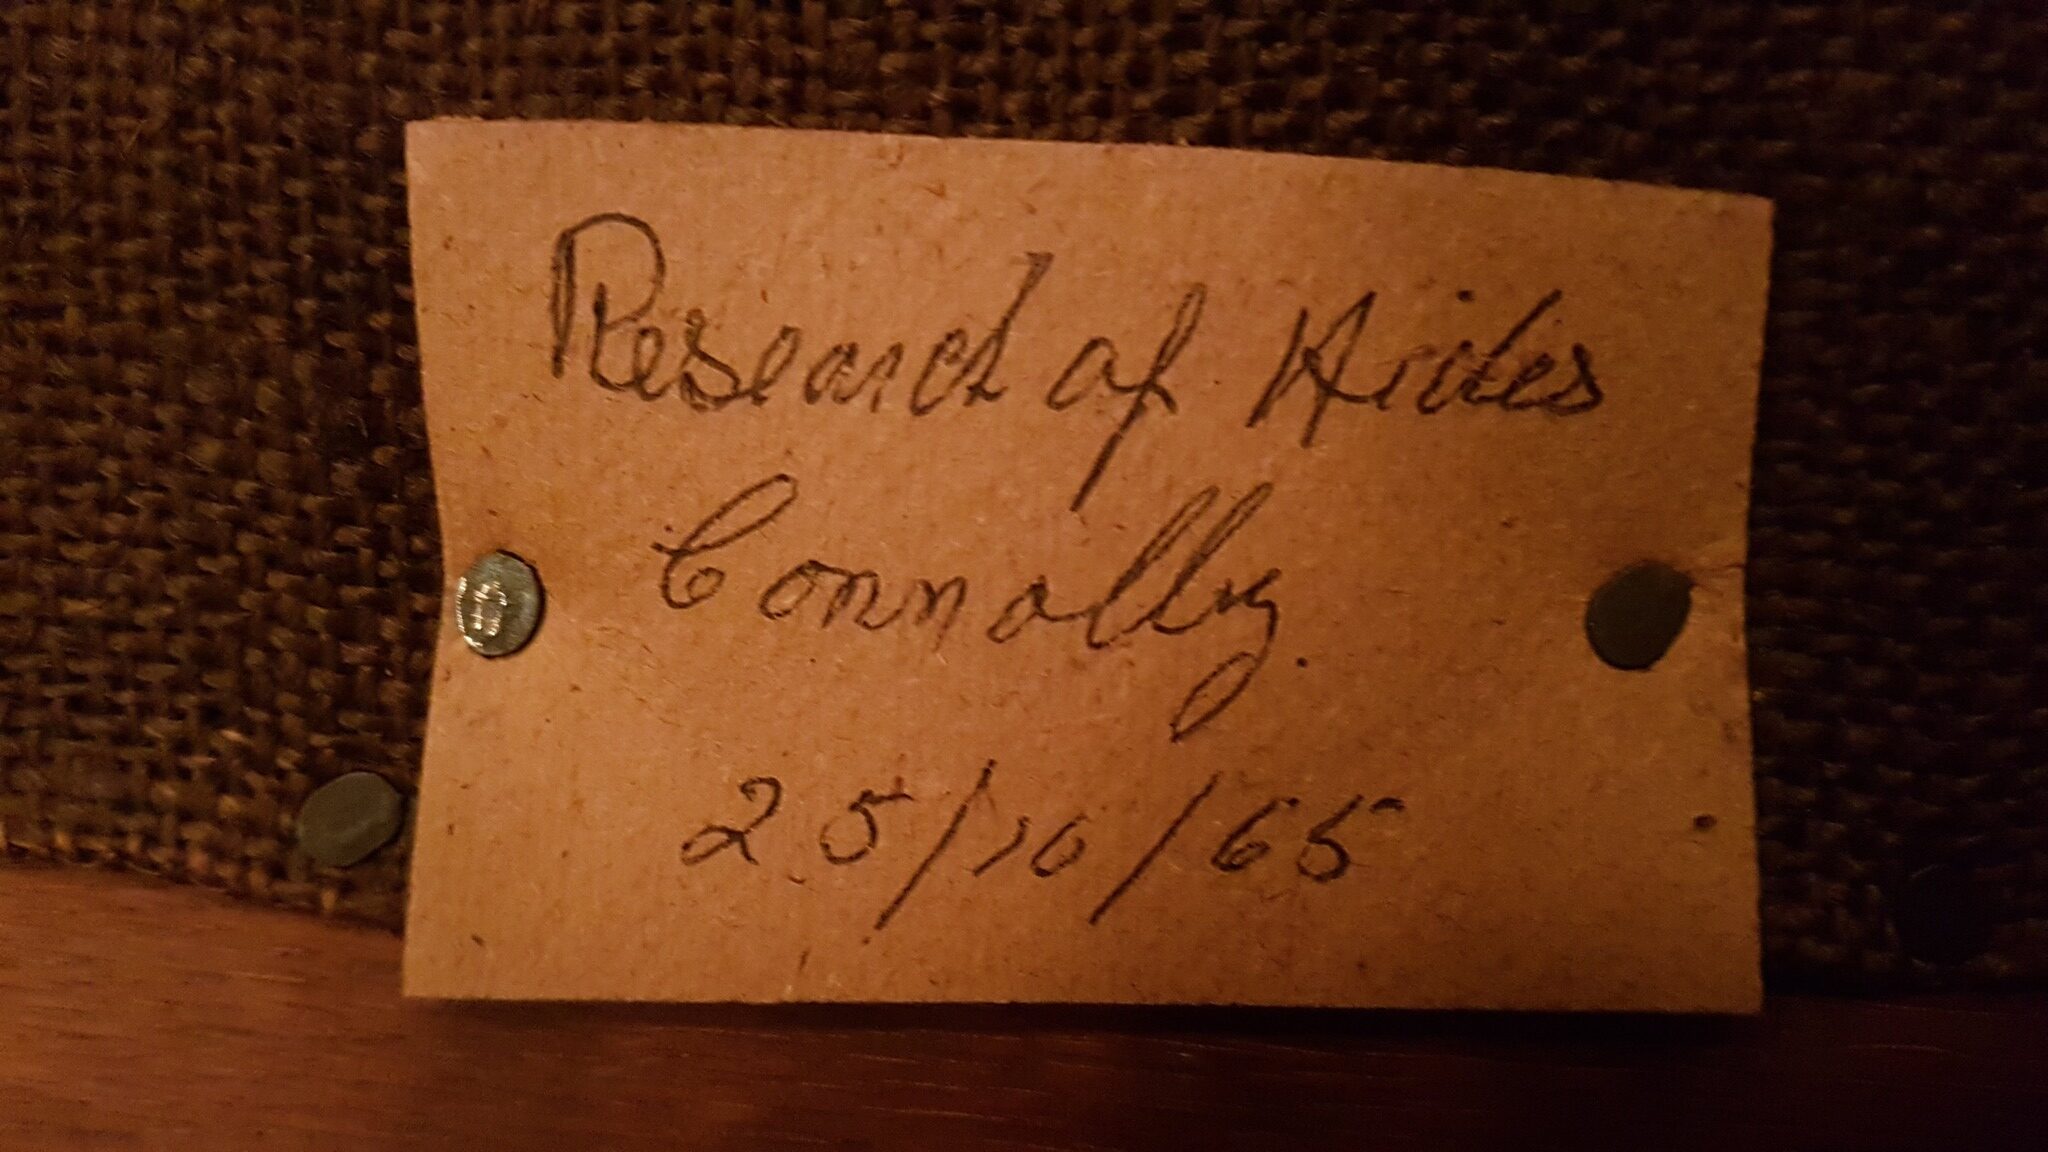 Research of Hides
Connolly.
25/10/65